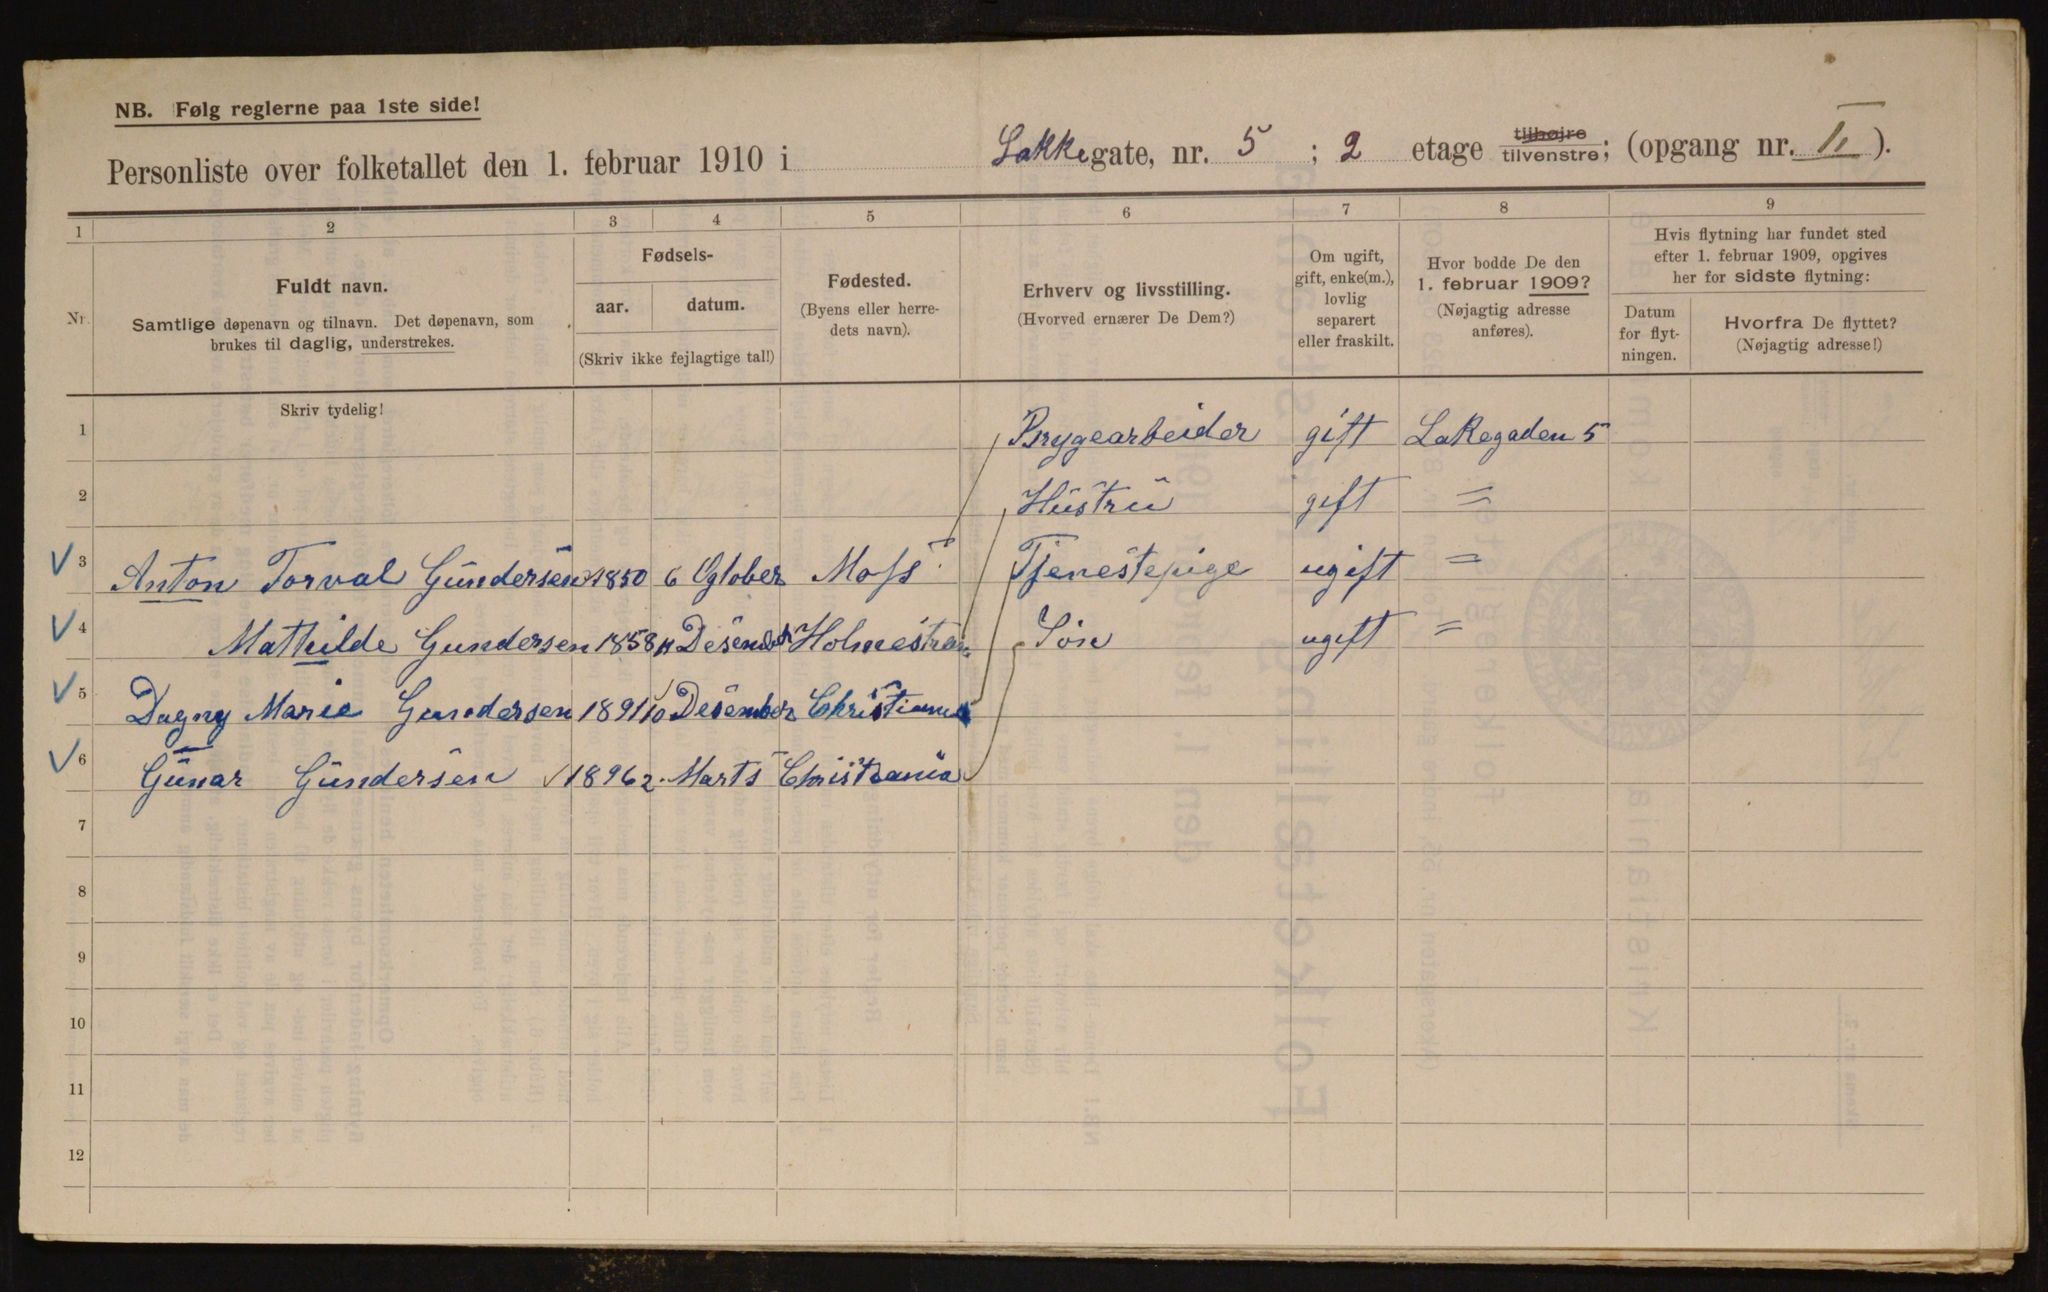 NB. Følg reglerne paa 1ste side!
Personliste over folketallet den 1. februar 1910 i Lakkegate, nr. 5 ; 2 etage tilhøjre tilvenstre; (opgang nr. II ).
1 2 3 4 5 6 7 8 9
Nr.
Fuldt navn.
Samtlige døpenavn og tilnavn. Det døpenavn, som
brukes til daglig, understrekes.
Fødsels-
aar. datum.
(Skriv ikke fejlagtige tal!)
Fødested.
(Byens eller herre-
dets navn).
Erhverv og livsstilling.
(Hvorved ernærer De Dem?)
Om ugift,
gift, enke(m.),
lovlig
separert
eller fraskilt.
Hvor bodde De den
1. februar 1909?
(Nøjagtig adresse
anføres).
Hvis flytning har fundet sted
efter 1. februar 1909, opgives
her for sidste flytning:
Datum
for flyt-
ningen.
Hvorfra De flyttet?
(Nøjagtig adresse!)
Skriv tydelig!
1 Brygearbeider gift Lakegaden 5
2 Hustru gift =
3 Tjenestepige ugift =
Anton Torval Gundersen 1850 6 Ogtober Moss
4 Søn ugift =
Mathilde Gundersen 1858 11 Desember Holmestran
5 Dagny Marie Gundersen 1891 10 Desember Christiania
6 Gunar Gundersen 1896 2. Marts Christiania
7
8
9
10
11
12